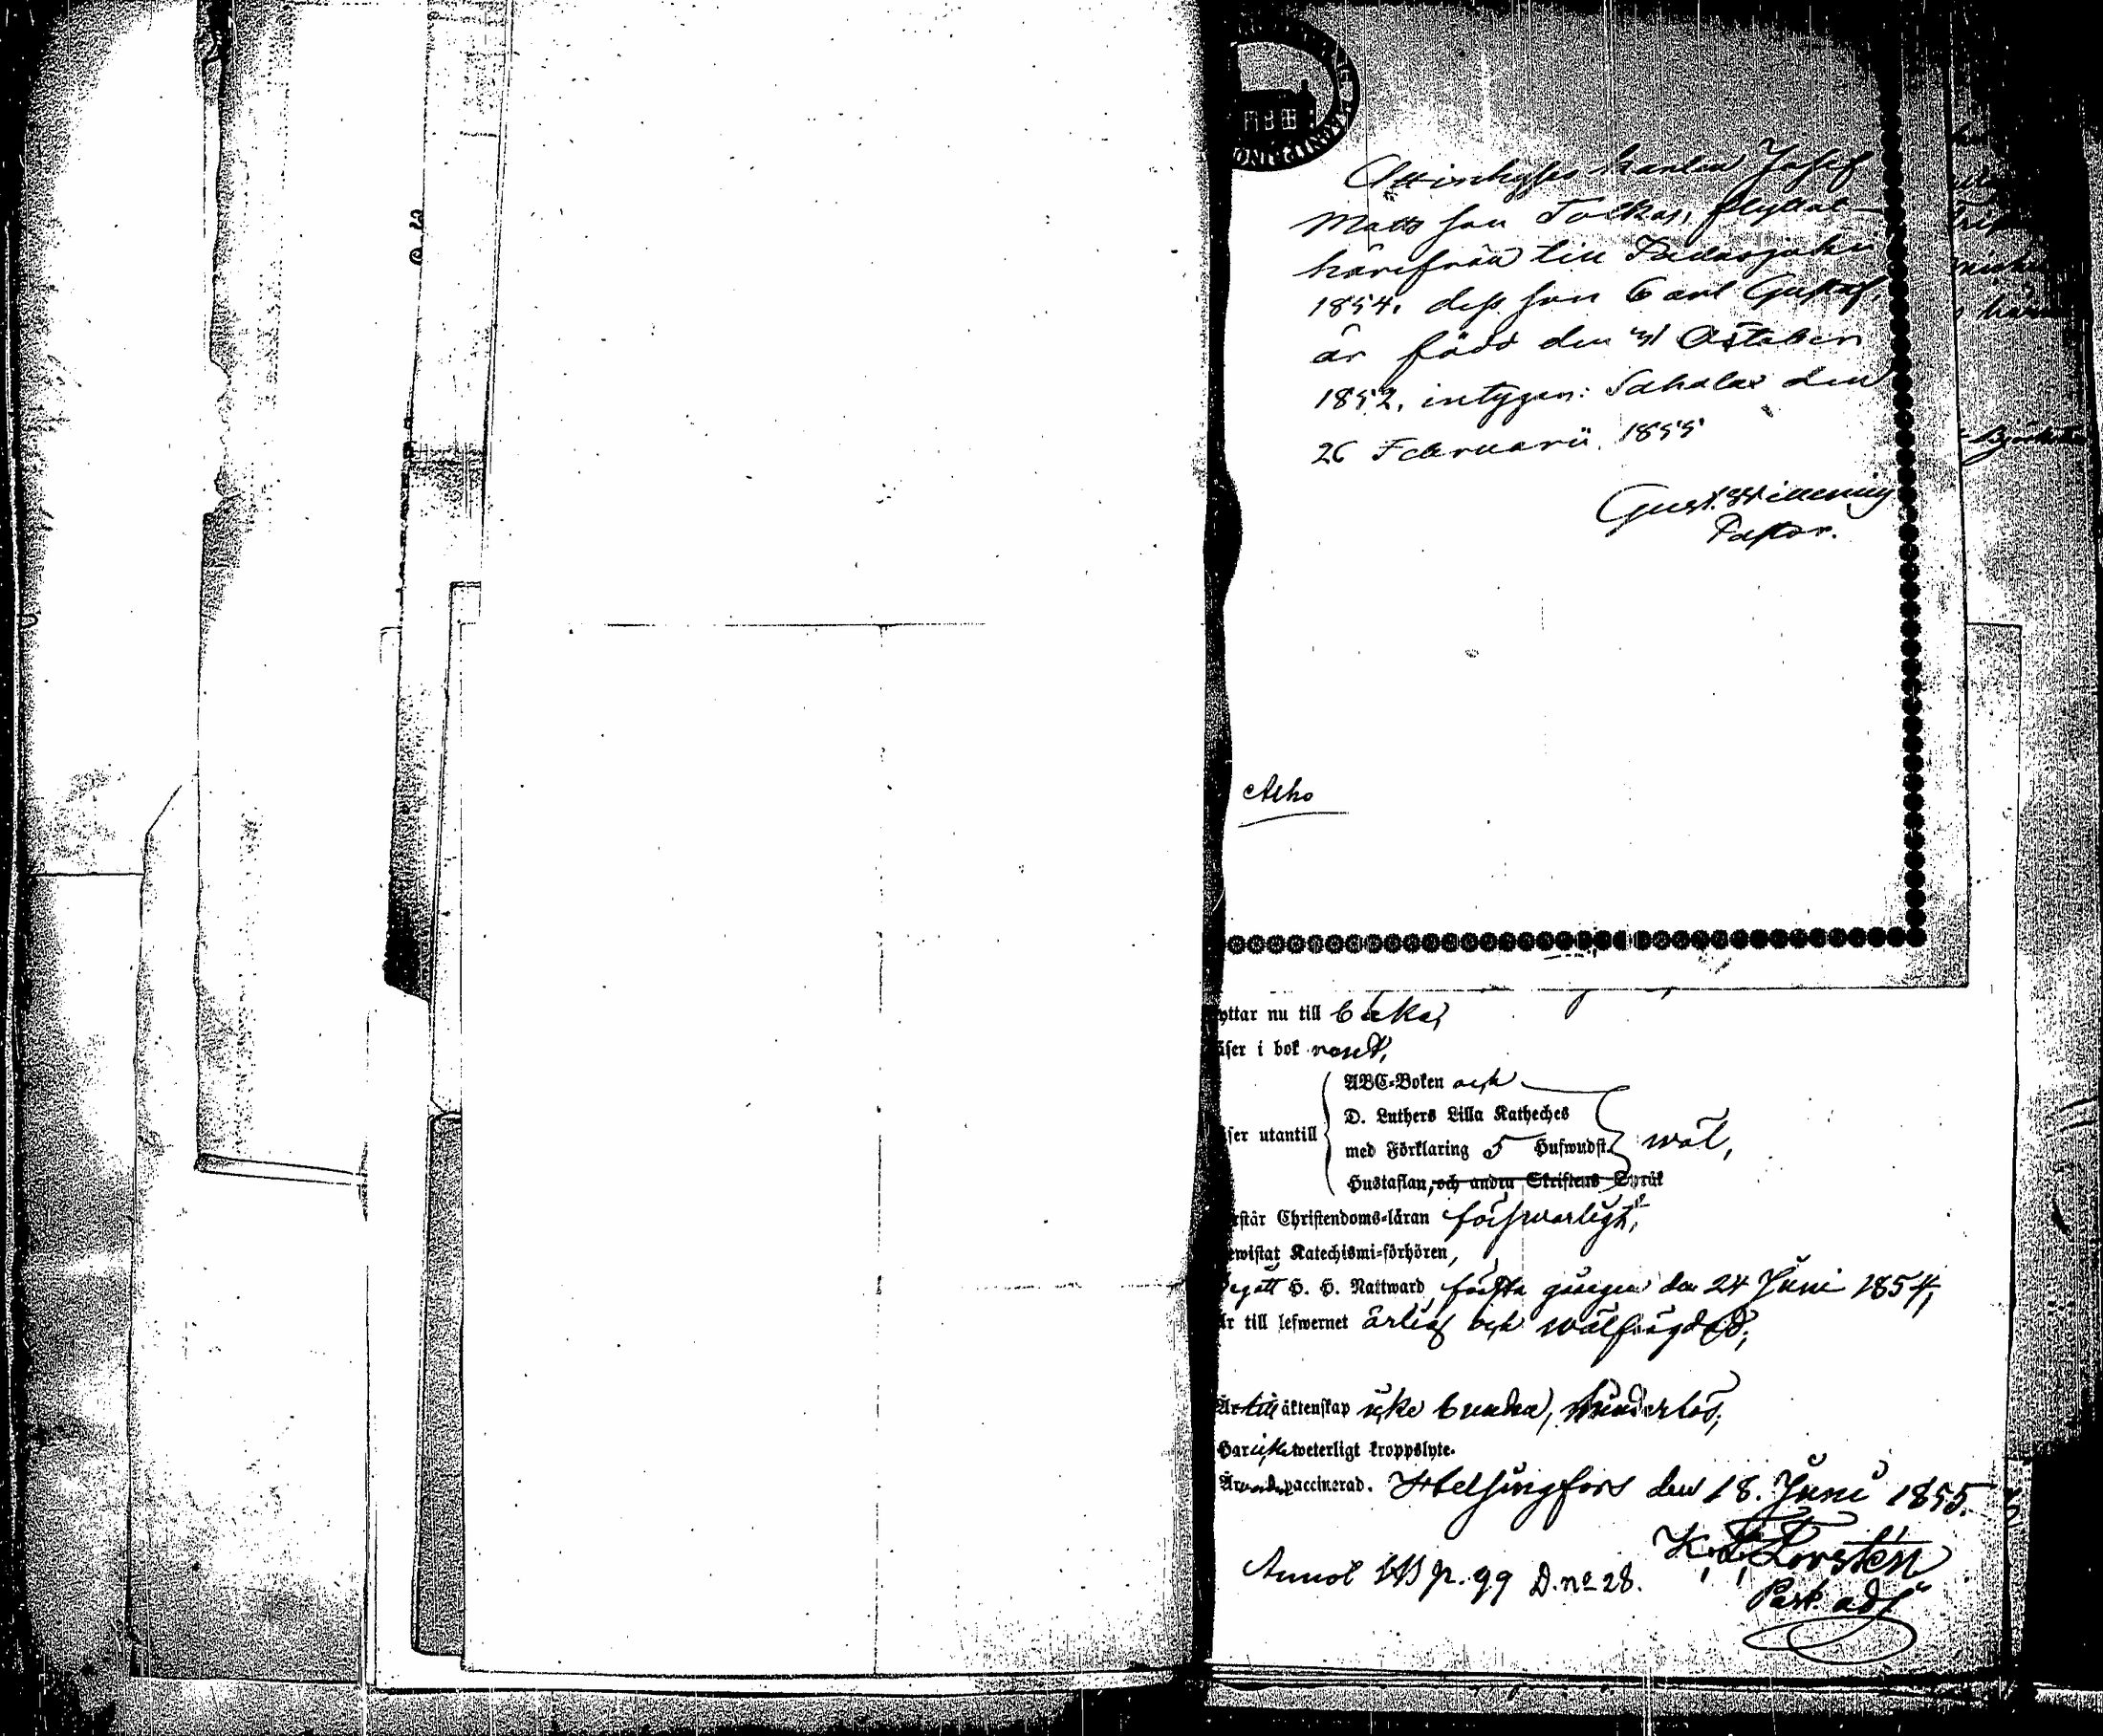 Att inhyses karlen Josef
Matts son Tolkas, flyttat
härifrån till Padasjoki
1854. dess son Carl Gustaf,
är född den 31 October
1852, intygar: Sahalax den
26 Februarii 1855
Gust. Willenius
Pastor.
Alho
yttar nu till
äser i bok rent,
ABC-Boken och
D. Luthers Lilla Katheches
äser utantill
med Förklaring 5 Hufwudst. wäl,
Hustaflan, och andra Skriftens Språk
rstår Christendoms-läran försvarligt,
ewistat Katechismi-förhören,
Begått H. H. Nattward första gången den 24 Juni 1854,
Är till lefwernet ärlig och wälfrägdad,
Är till äktenskap icke bunden, hinderlös,
Har icke weterligt kroppslyte.
Är vaccinerad. Helsingfors den 18. Juni 1855.
Annot p. 99 D. no 28.
Past. adj